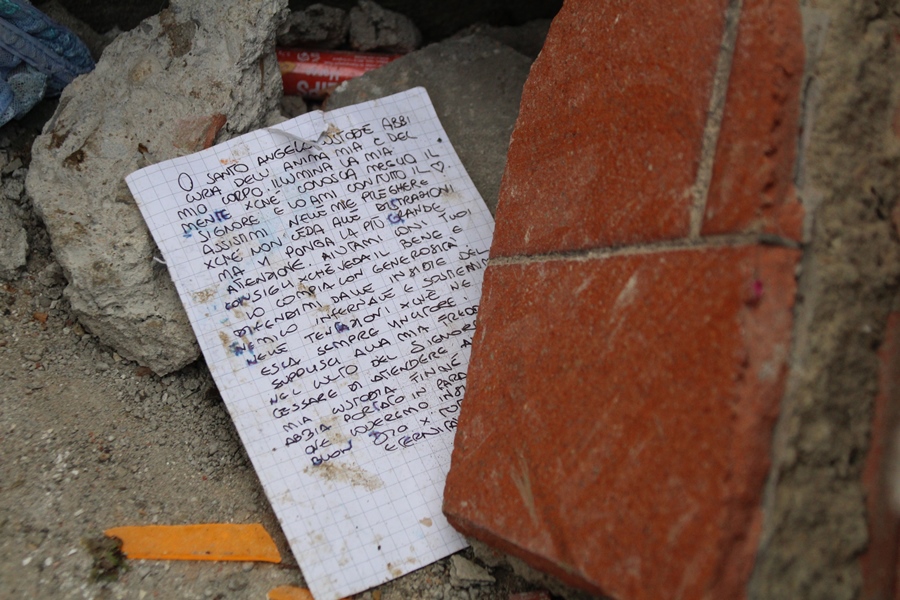 O SANTO ANGELO CUSTODE ABBI
CURA DELL'ANIMA MIA E DEL
MIO CORPO. ILLUMINA LA MIA
MENTE XCHÉ CONOSCA MEGLIO IL
SIGNORE E LO AMI CON TUTTO IL ♡
ASSISTIMI NELLE MIE PREGHIERE
XCHÉ NON CEDA ALLE DISTRAZIONI
MA VI PONGA LA PIÙ GRANDE
ATTENZIONE. AIUTAMI CON I TUOI
CONSIGLI XCHÉ VEDA IL BENE E
LO COMPIA CON GENEROSITÀ
DIFENDIMI DALLE INSIDIE DEL
NEMICO INFERNALE E SOSTIENIMI
NELLE TENTAZIONI XCHÉ NE
ESCA SEMPRE VINCITORE
SUPPLISCI ALLA MIA FREDD
NEL CULTO DEL SIGNORE
CESSARE DI ATTENDERE A
MIA CUSTODIA FINCHÉ
ABBIA PORTATO IN PARA
OVE LODEREMO INSI
BUON DIO X TUT
ETERNITÀ